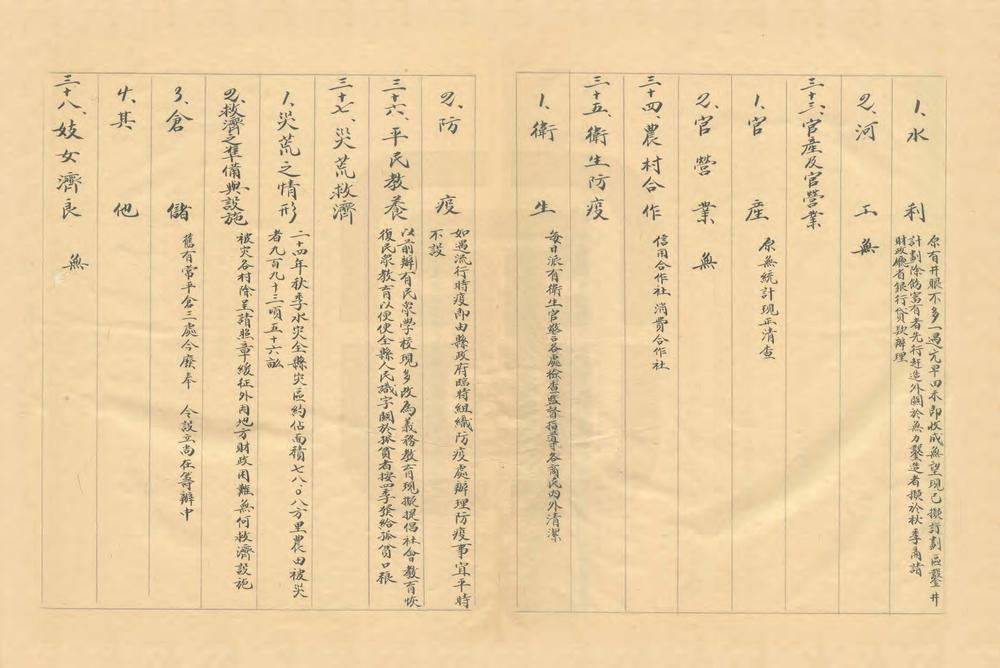 1、水利 原有井眼不多一遇亢旱田禾即收成無望現已擬訂劃區鑿井
計劃除飭富有者先行赶造外關於無力鑿造者擬於秋季商請
財政廳省銀行貸款辦理
2、河工 無
三十三、官產及官營業
1、官產 原無統計現正清查
2、官營業 無
三十四、農村合作 信用合作社 消費合作社
三十五、衛生防疫
1、衛生 每日派有衛生官警各處檢查監督指導各商民內外清潔
2、防疫 如遇流行時疫即由縣政府臨時組織防疫處辦理防疫事宜平時
不設
三十六、平民教養 以前辦有民眾學校現多改為義務教育現擬提倡社會教育恢
復民眾教育以便使全縣人民識字關於孤貧者按四季發給孤貧口粮
三十七、災荒救濟
1、災荒之情形 二十四年秋季水災全縣災區約佔面積七八〇八方里農田被災
者九百九十三頃五十六畝
2、救濟之準備與設施 被災各村除呈請照章緩征外因地方財政困難無何救濟設施
3、倉儲 舊有常平倉三處今廢奉 令設立尚在籌辦中
4、其他
三十八、妓女濟良 無